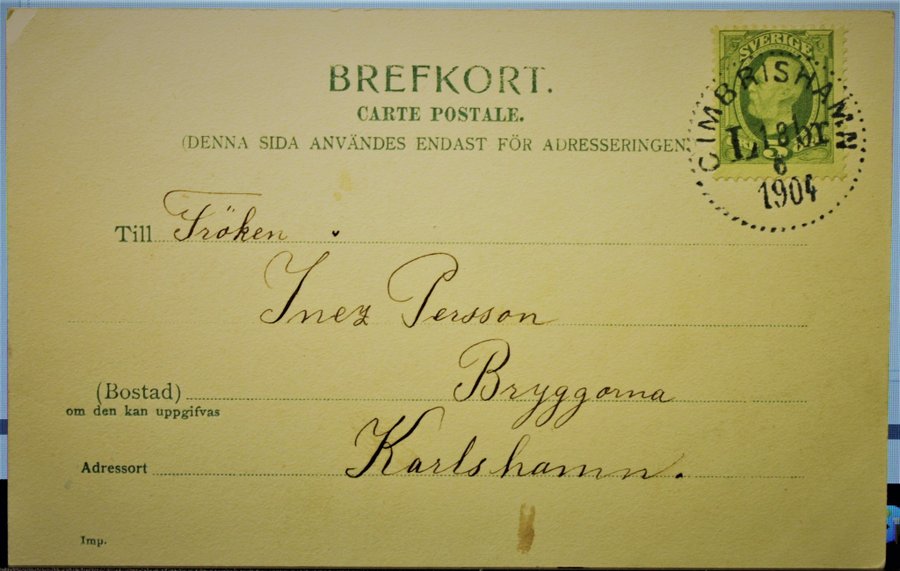 BREFKORT.
CARTE POSTALE.
(DENNA SIDA ANVÄNDES ENDAST FÖR ADRESSERINGEN
SVERIGE
CIMBRISHAMN
L br
18
6
1904
Till Fröken
Inez Persson
(Bostad) Bryggorna
om den kan uppgifvas
Adressort Karlshamn.
Imp.